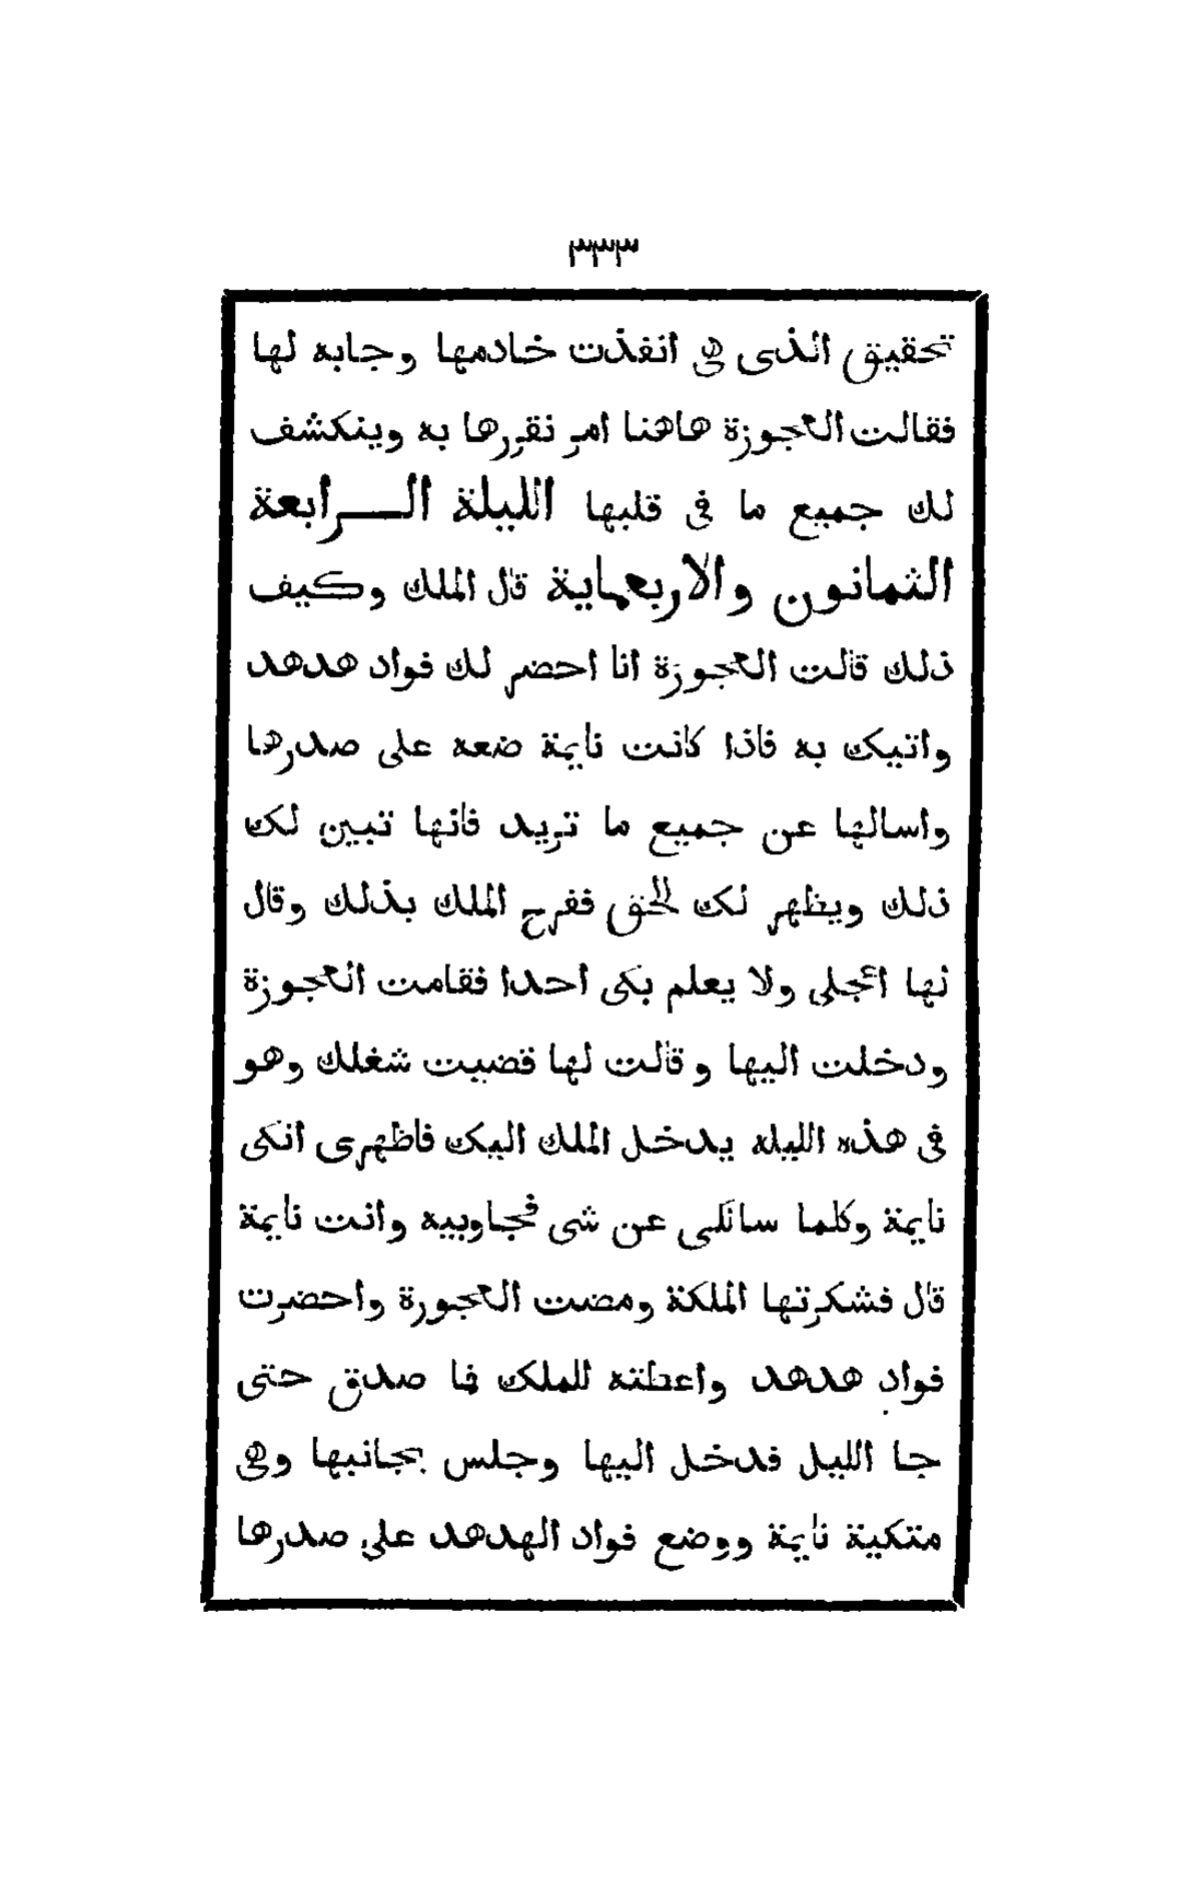 ٣٣٣
تحقيق الذى هى انفذت خادمها وجابه لها
فقالت العجوزة هاهنا امر نقررها به وينكشف
لك جميع ما فى قلبها الليلة الـــرابعة
الثمانون والاربعماية قال الملك وكيف
ذلك قالت العجوزة انا احضر لك فواد هدهد
واتيك به فاذا كانت نايمة ضعه على صدرها
واسالها عن جميع ما تريد فانها تبين لك
ذلك ويظهر لك الحق ففرح الملك بذلك وقال
لها اعجلى ولا يعلم بكى احدا فقامت العجوزة
ودخلت اليها وقالت لها قضيت شغلك وهو
فى هذه الليله يدخل الملك اليك فاظهرى انكى
نايمة وكلما سائلكى عن شى فجاوبيه وانت نايمة
قال فشكرتها الملكة ومضت العجورة واحضرت
فواد هدهد واعطته للملك فما صدق حتى
جا الليل فدخل اليها وجلس بجانبها وهى
متكية نايمة ووضع فواد الهدهد على صدرها